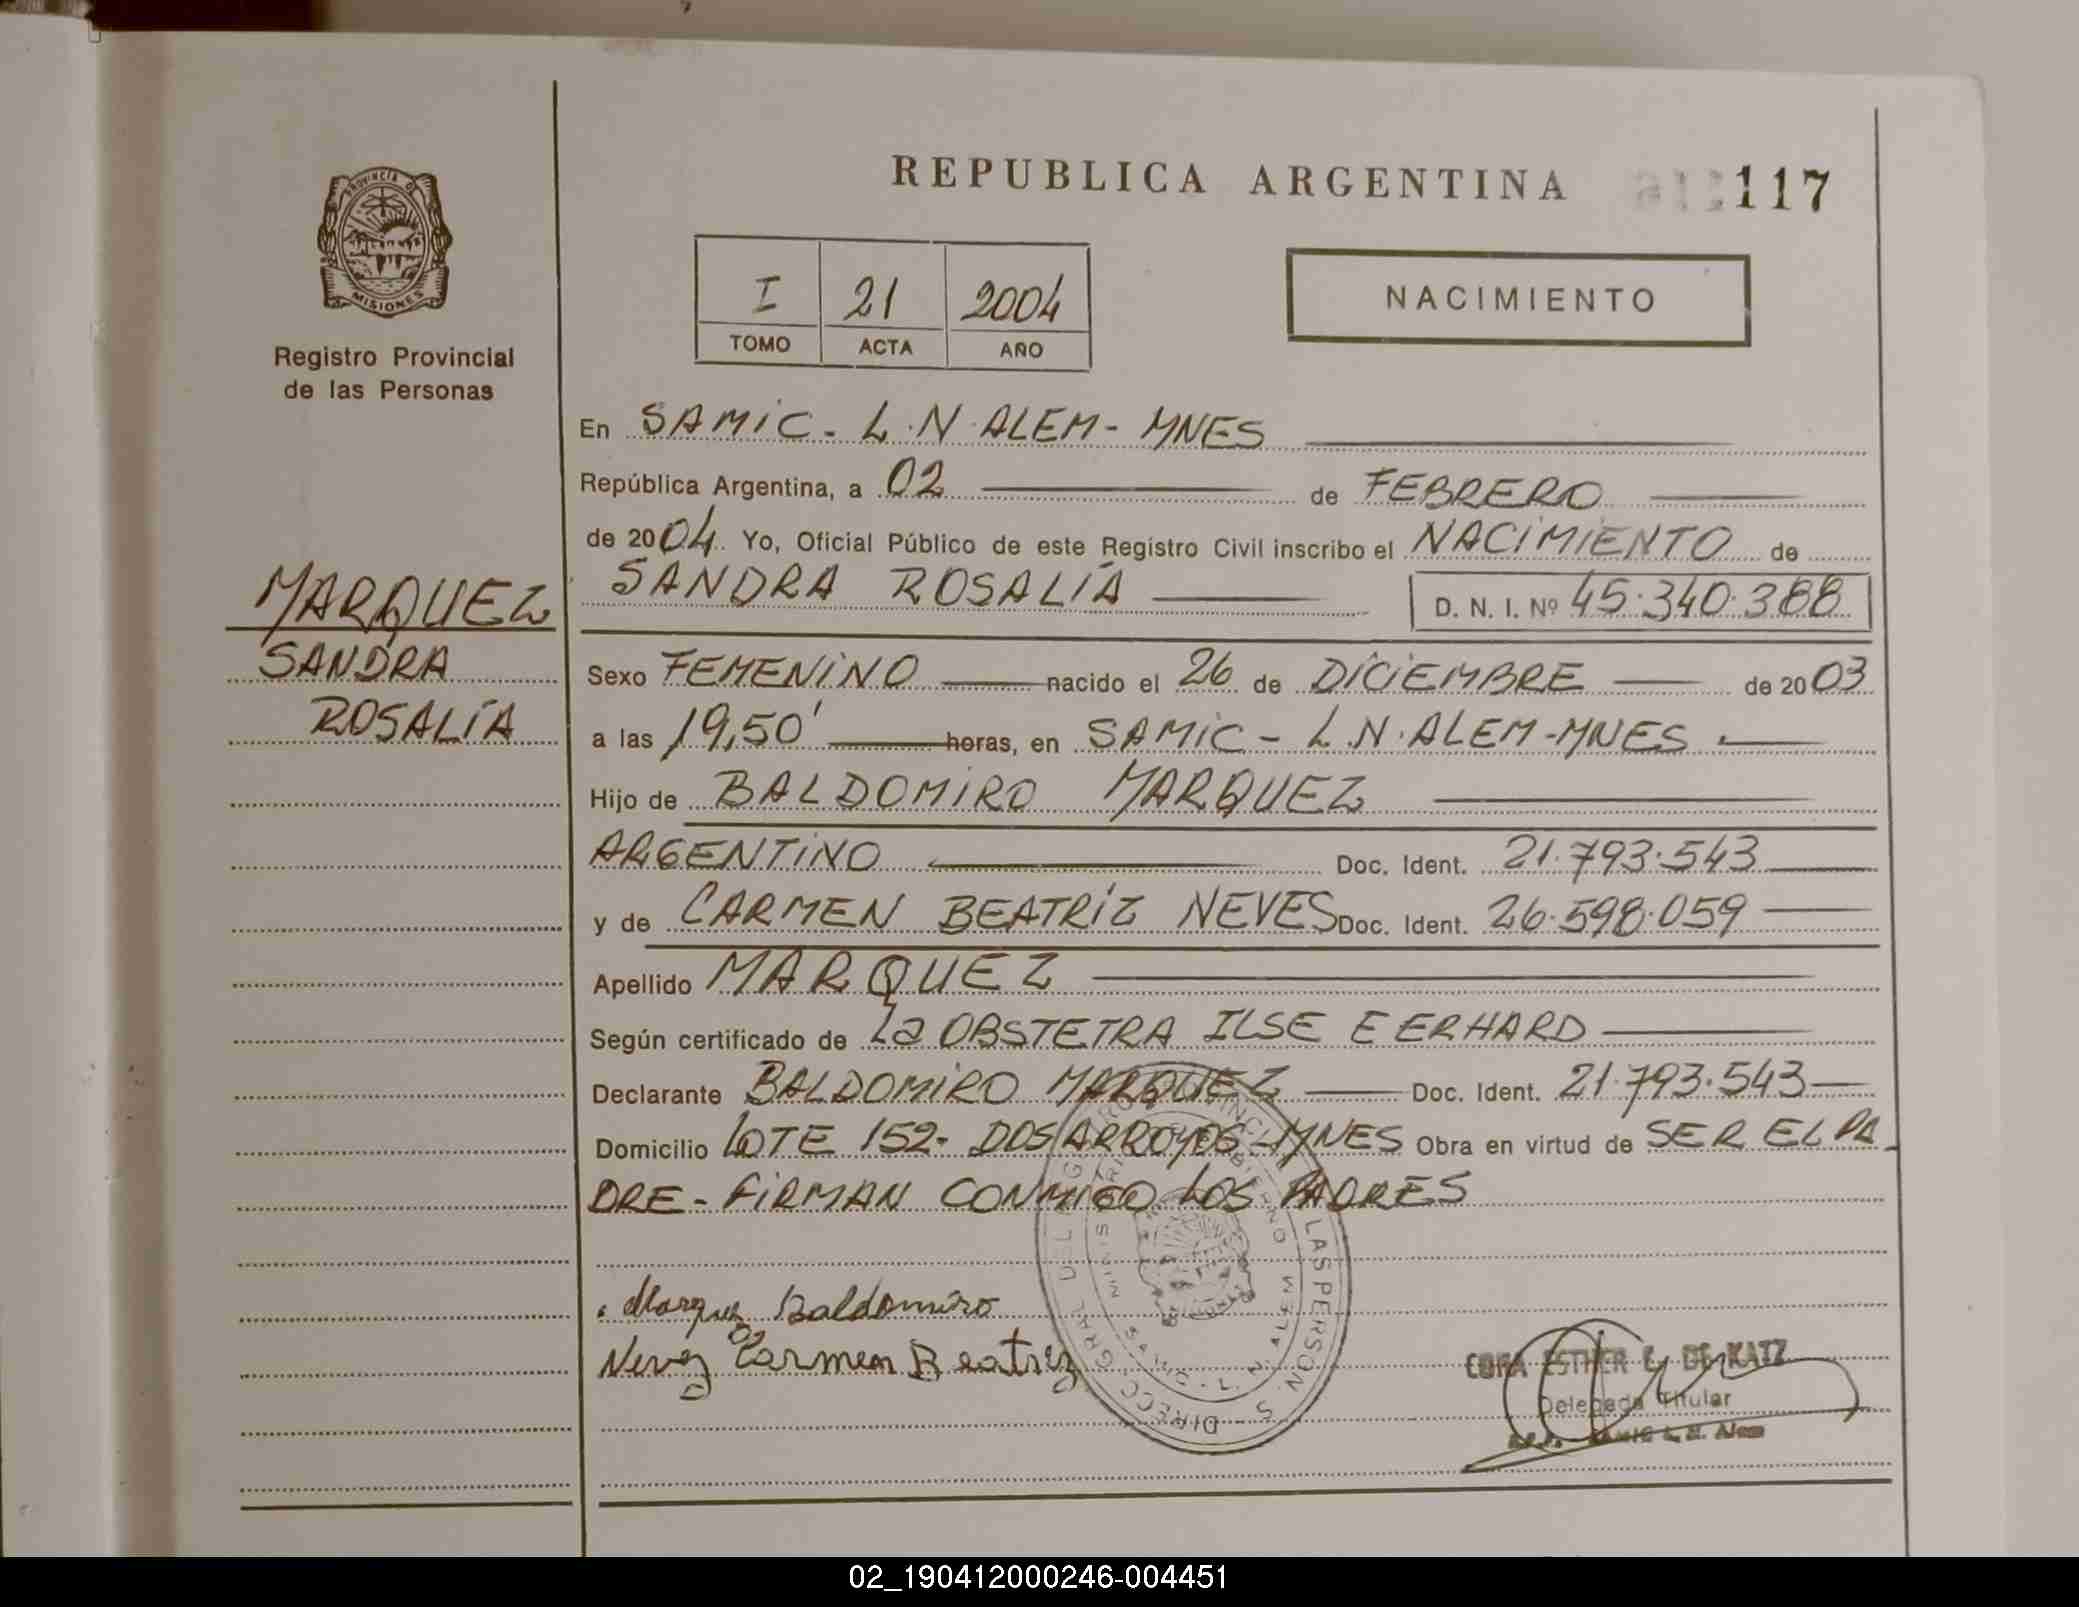 REPUBLICA ARGENTINA 117
PROVINCIA DE MISIONES
Registro Provincial
de las Personas
I 21 2004
TOMO ACTA AÑO
NACIMIENTO
En SAMIC - L.N. ALEM - MNES
República Argentina, a 02 de FEBRERO
de 2004. Yo, Oficial Público de este Registro Civil inscribo el NACIMIENTO de
SANDRA ROSALÍA D. N. I. Nº 45.340.388
MARQUEZ
SANDRA
ROSALÍA
Sexo FEMENINO nacido el 26 de DICIEMBRE de 2003
a las 19,50' horas, en SAMIC - L.N. ALEM - MNES
Hijo de BALDOMIRO MARQUEZ
ARGENTINO Doc. Ident. 21.793.543
y de CARMEN BEATRIZ NEVES Doc. Ident. 26.598.059
Apellido MARQUEZ
Según certificado de La OBSTETRA ILSE E ERHARD
Declarante BALDOMIRO MARQUEZ Doc. Ident. 21.793.543
Domicilio LOTE 152 - DOS ARROYOS - MNES Obra en virtud de SER EL PA
DRE - FIRMAN CONMIGO LOS PADRES
Marquez Baldomiro
Carmen Beatriz
ESTHER DE KATZ
Delegada Titular
SAMIC L. N. Alem
02_190412000246-004451